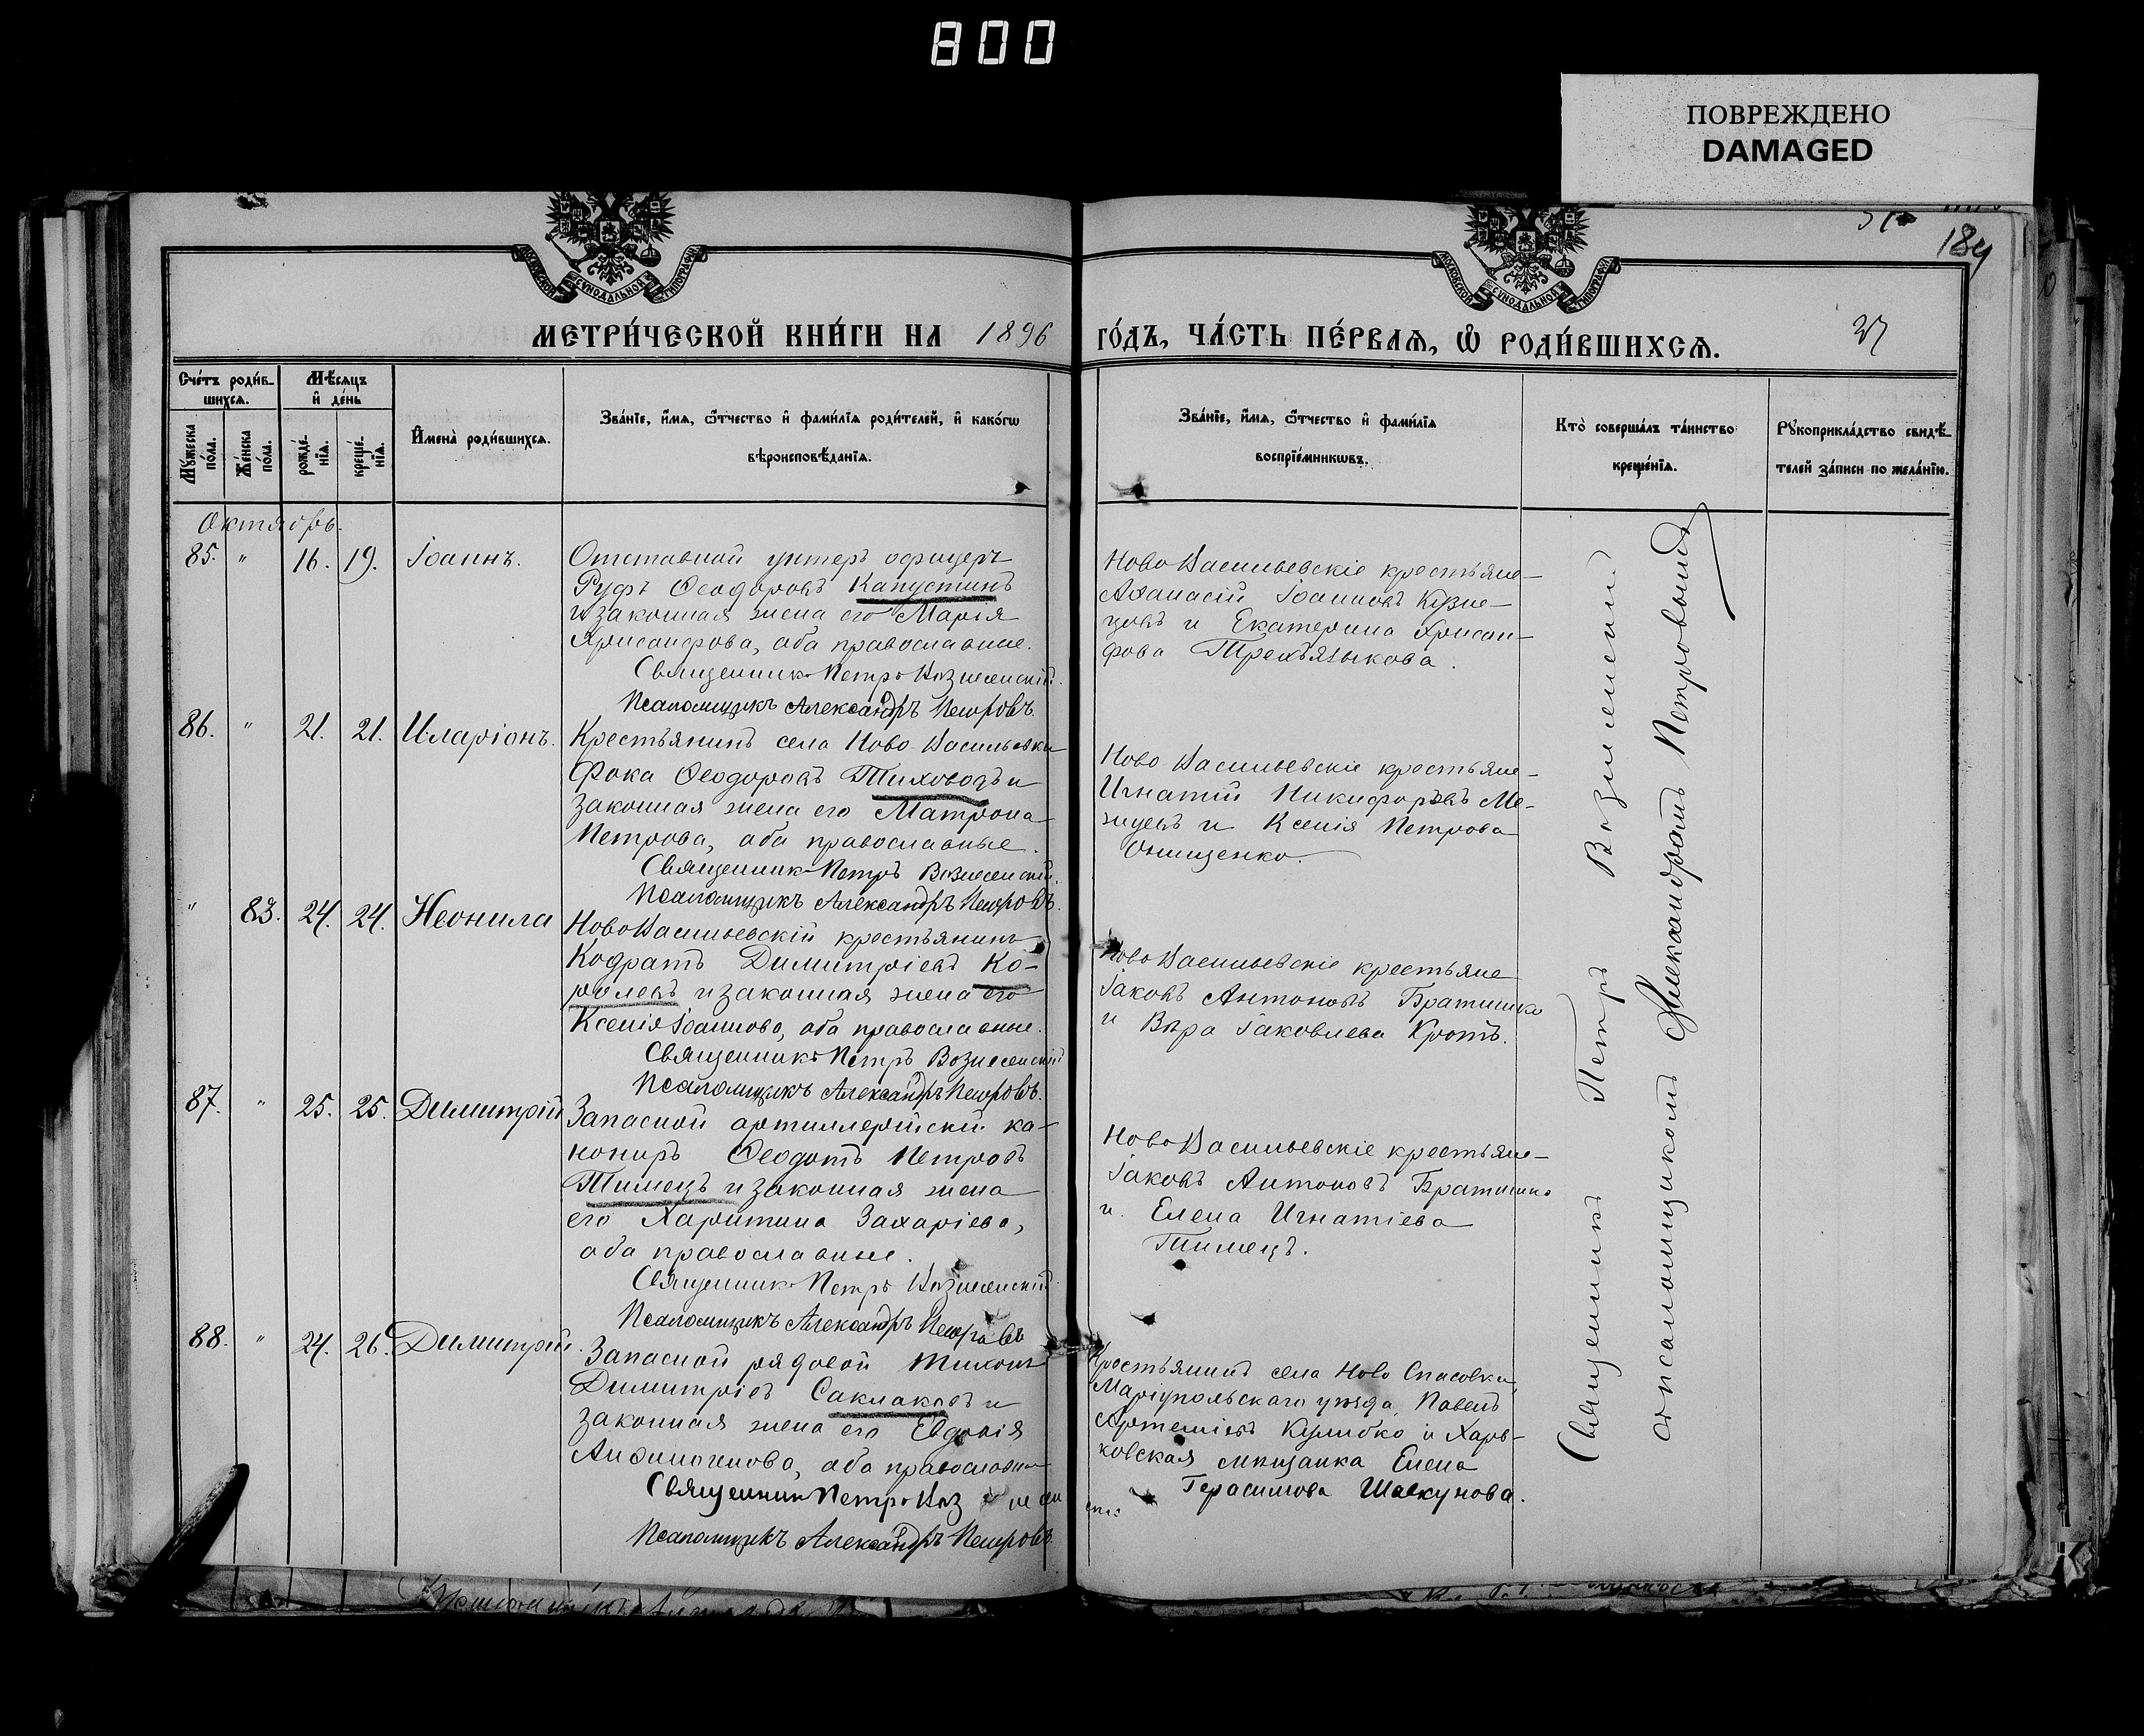 800
ПОВРЕЖДЕНО
DAMAGED
184
МОСКОВСКОЙ СѴНОДАЛЬНОЙ ТИПОГРАФІИ
МОСКОВСКОЙ СѴНОДАЛЬНОЙ ТИПОГРАФІИ
МЕТРИ́ЧЕСКОЙ КНИ́ГИ НА 1896
ГО́ДЪ, ЧА́СТЬ ПЕ́РВАѦ, Ѡ҆ РОДИ́ВШИХСѦ.
37
Сче́тъ роди́в-
шихсѧ.
Мꙋ́жеска по́ла.
Же́нска по́ла.
Мѣ́сѧцъ
и҆ де́нь
рожде́-
нїѧ.
креще́-
нїѧ.
И҆мена̀ роди́вшихсѧ.
Зва́нїе, и҆́мѧ, ѻ҆́тчество и҆ фами́лїѧ роди́телей, и҆ како́гѡ
вѣроисповѣ́данїѧ.
Зва́нїе, и҆́мѧ, ѻ҆́тчество и҆ фами́лїѧ
воспрїе́мникѡвъ.
Кто̀ соверша́лъ та́инство
креще́нїѧ.
Рꙋкоприкла́дство свидѣ́-
телей за́писи по жела́нїю.
Октябрь.
85. " 16. 19. Іоаннъ.
Отставной унтеръ офицеръ
Руфъ Ѳеодоровъ Капустинъ
и законная жена его Марія
Хрисанфова, оба православные.
Священникъ Петръ Вознесенскій.
Псаломщикъ Александръ Петровъ.
НовоВасильевскіе крестьяне
Аѳанасій Іоанновъ Кузне-
цовъ и Екатерина Хрисан-
фова Трехъязыкова.
86. " 21. 21. Иларіонъ.
Крестьянинъ села Ново Васильевки
Фока Ѳеодоровъ Тиховодъ и
законная жена его Матрона
Петрова, оба православные.
Священникъ Петръ Вознесенскій.
Псаломщикъ Александръ Петровъ.
Ново Васильевскіе крестьяне
Игнатій Никифоровъ Ме-
и Ксенія Петрова
Онищенко.
" 83. 24. 24. Неонила
НовоВасильевскій крестьянинъ
Кодратъ Димитріевъ Ко-
ролевъ и законная жена его
Ксенія Іоаннова, оба православные.
Священникъ Петръ Вознесенскій
Псаломщикъ Александръ Петровъ.
НовоВасильевскіе крестьяне
Іаковъ Антоновъ Братишко
и Вѣра Іаковлева Кротъ.
87. " 25. 25. Димитрій
Запасной артиллерійскій ка-
нониръ Ѳеодотъ Петровъ
Тимецъ и законная жена
его Харитина Захаріева,
оба православные.
Священникъ Петръ Вознесенскій
Псаломщикъ Александръ Петровъ
НовоВасильевскіе крестьяне
Іаковъ Антоновъ Братишко
и Елена Игнатіева
Тимецъ.
88. " 24. 26. Димитрій.
Запасной рядовой Тихонъ
Димитріевъ Саклаковъ и
законная жена его Евдокія
Анфиногенова, оба православные
Священникъ Петръ Вознесенскій
Псаломщикъ Александръ Петровъ.
Крестьянинъ села Ново Спасовки,
Маріупольскаго уѣзда, Павелъ
Артеміевъ Кулибко и Харь-
ковская мѣщанка Елена
Герасимова Шавкунова.
Священникъ Петръ Вознесенскій
съ псаломщикомъ Александромъ Петровымъ